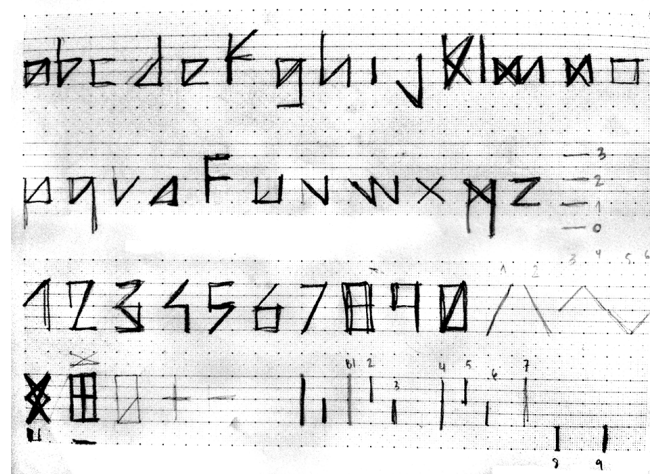 a b c d e f g h i j k l m n o
p q r s t u v w x y z
3
2
1
0
1 2 3 4 5 6
1 2 3 4 5 6 7 8 9 0
2 4 5 7
+ - 3 6
8 9